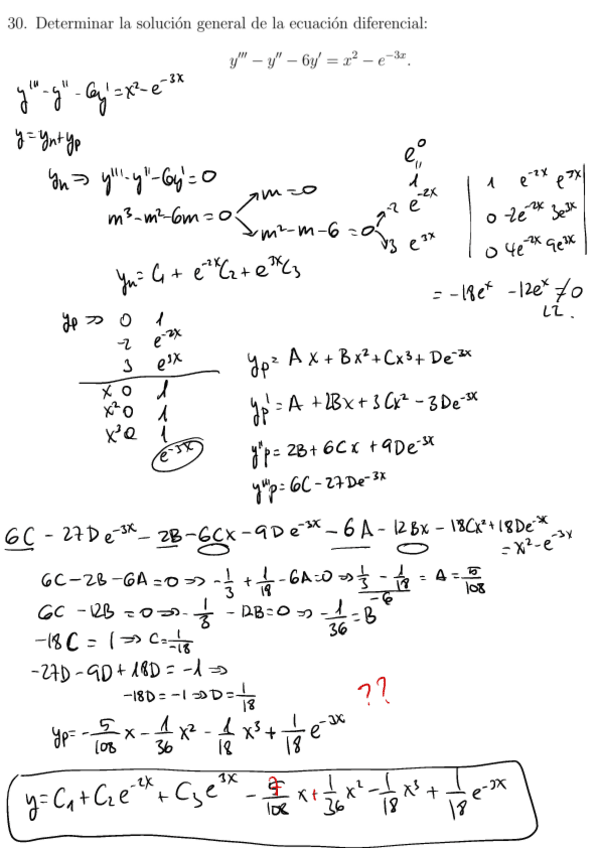 30. Determinar la solución general de la ecuación diferencial:
y''' − y'' − 6y' = x² − e^{−3x}.
y''' - y'' - 6y' = x² - e^{-3x}
y = y_n + y_p
y_n ⇒ y''' - y'' - 6y' = 0
m³ - m² - 6m = 0
m = 0
m² - m - 6 = 0
e⁰
"
1
-2 e^{-2x}
3 e^{3x}
1 e^{-2x} e^{3x}
0 -2e^{-2x} 3e^{3x}
0 4e^{-2x} 9e^{3x}
= -18e^x - 12e^x ≠ 0
LI.
y_n = C₁ + e^{-2x}C₂ + e^{3x}C₃
y_p ⇒ 0 1
-2 e^{-2x}
3 e^{3x}
x 0 1
x² 0 1
x³ 0 1
e^{-3x}
y_p = Ax + Bx² + Cx³ + De^{-3x}
y'_p = A + 2Bx + 3Cx² - 3De^{-3x}
y''_p = 2B + 6Cx + 9De^{-3x}
y'''_p = 6C - 27De^{-3x}
6C - 27De^{-3x} - 2B - 6Cx - 9De^{-3x} - 6A - 12Bx - 18Cx² + 18De^{-3x}
= x² - e^{-3x}
6C - 2B - 6A = 0 ⇒ -1/3 + 1/18 - 6A = 0 ⇒ (1/3 - 1/18)/-6 = A = 5/108
6C - 12B = 0 ⇒ -1/3 - 12B = 0 ⇒ -1/36 = B
-18C = 1 ⇒ C = 1/-18
-27D - 9D + 18D = -1 ⇒
-18D = -1 ⇒ D = 1/18
??
y_p = -5/108 x - 1/36 x² - 1/18 x³ + 1/18 e^{-3x}
y = C₁ + C₂e^{-2x} + C₃e^{3x} - 7/108 x + 1/36 x² - 1/18 x³ + 1/18 e^{-3x}